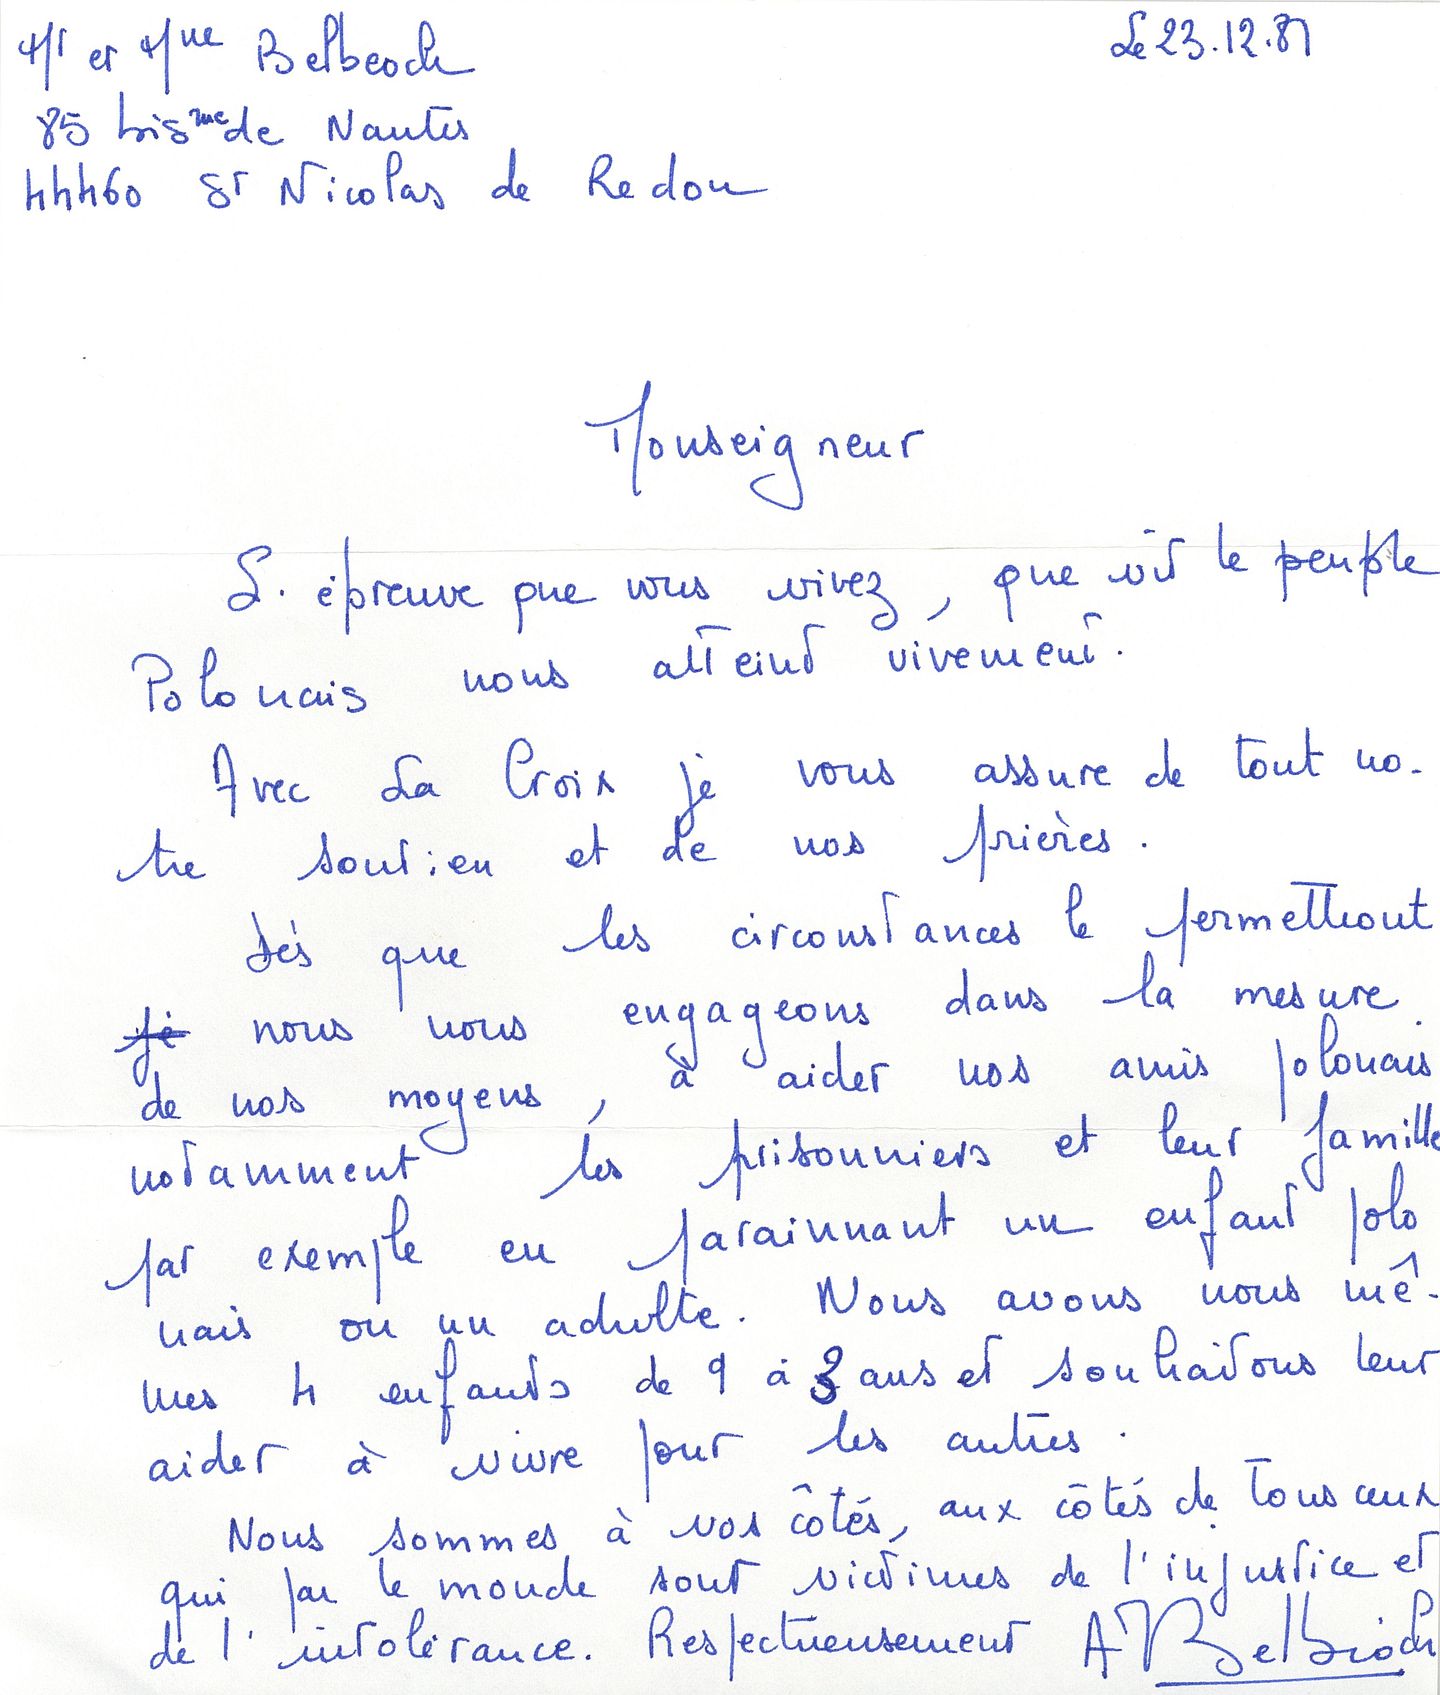 Mr et Mme Belbeoch
Le 23.12.81
85 bis rue de Nantes
44460 St Nicolas de Redon
Monseigneur
L'épreuve que vous vivez, que vit le peuple
Polonais nous atteint vivement.
Avec La Croix je vous assure de tout no-
tre soutien et de nos prières.
Dès que les circonstances le permettront
je nous nous engageons dans la mesure
de nos moyens, à aider nos amis polonais
notamment les prisonniers et leur famille
par exemple en parainnant un enfant polo
nais ou un adulte. Nous avons nous mê-
mes 4 enfants de 9 à 3 ans et souhaitons leur
aider à vivre pour les autres.
Nous sommes à vos côtés, aux côtés de tous ceux
qui par le monde sont victimes de l'injustice et
de l'intolérance. Respectueusement A Belbeoch